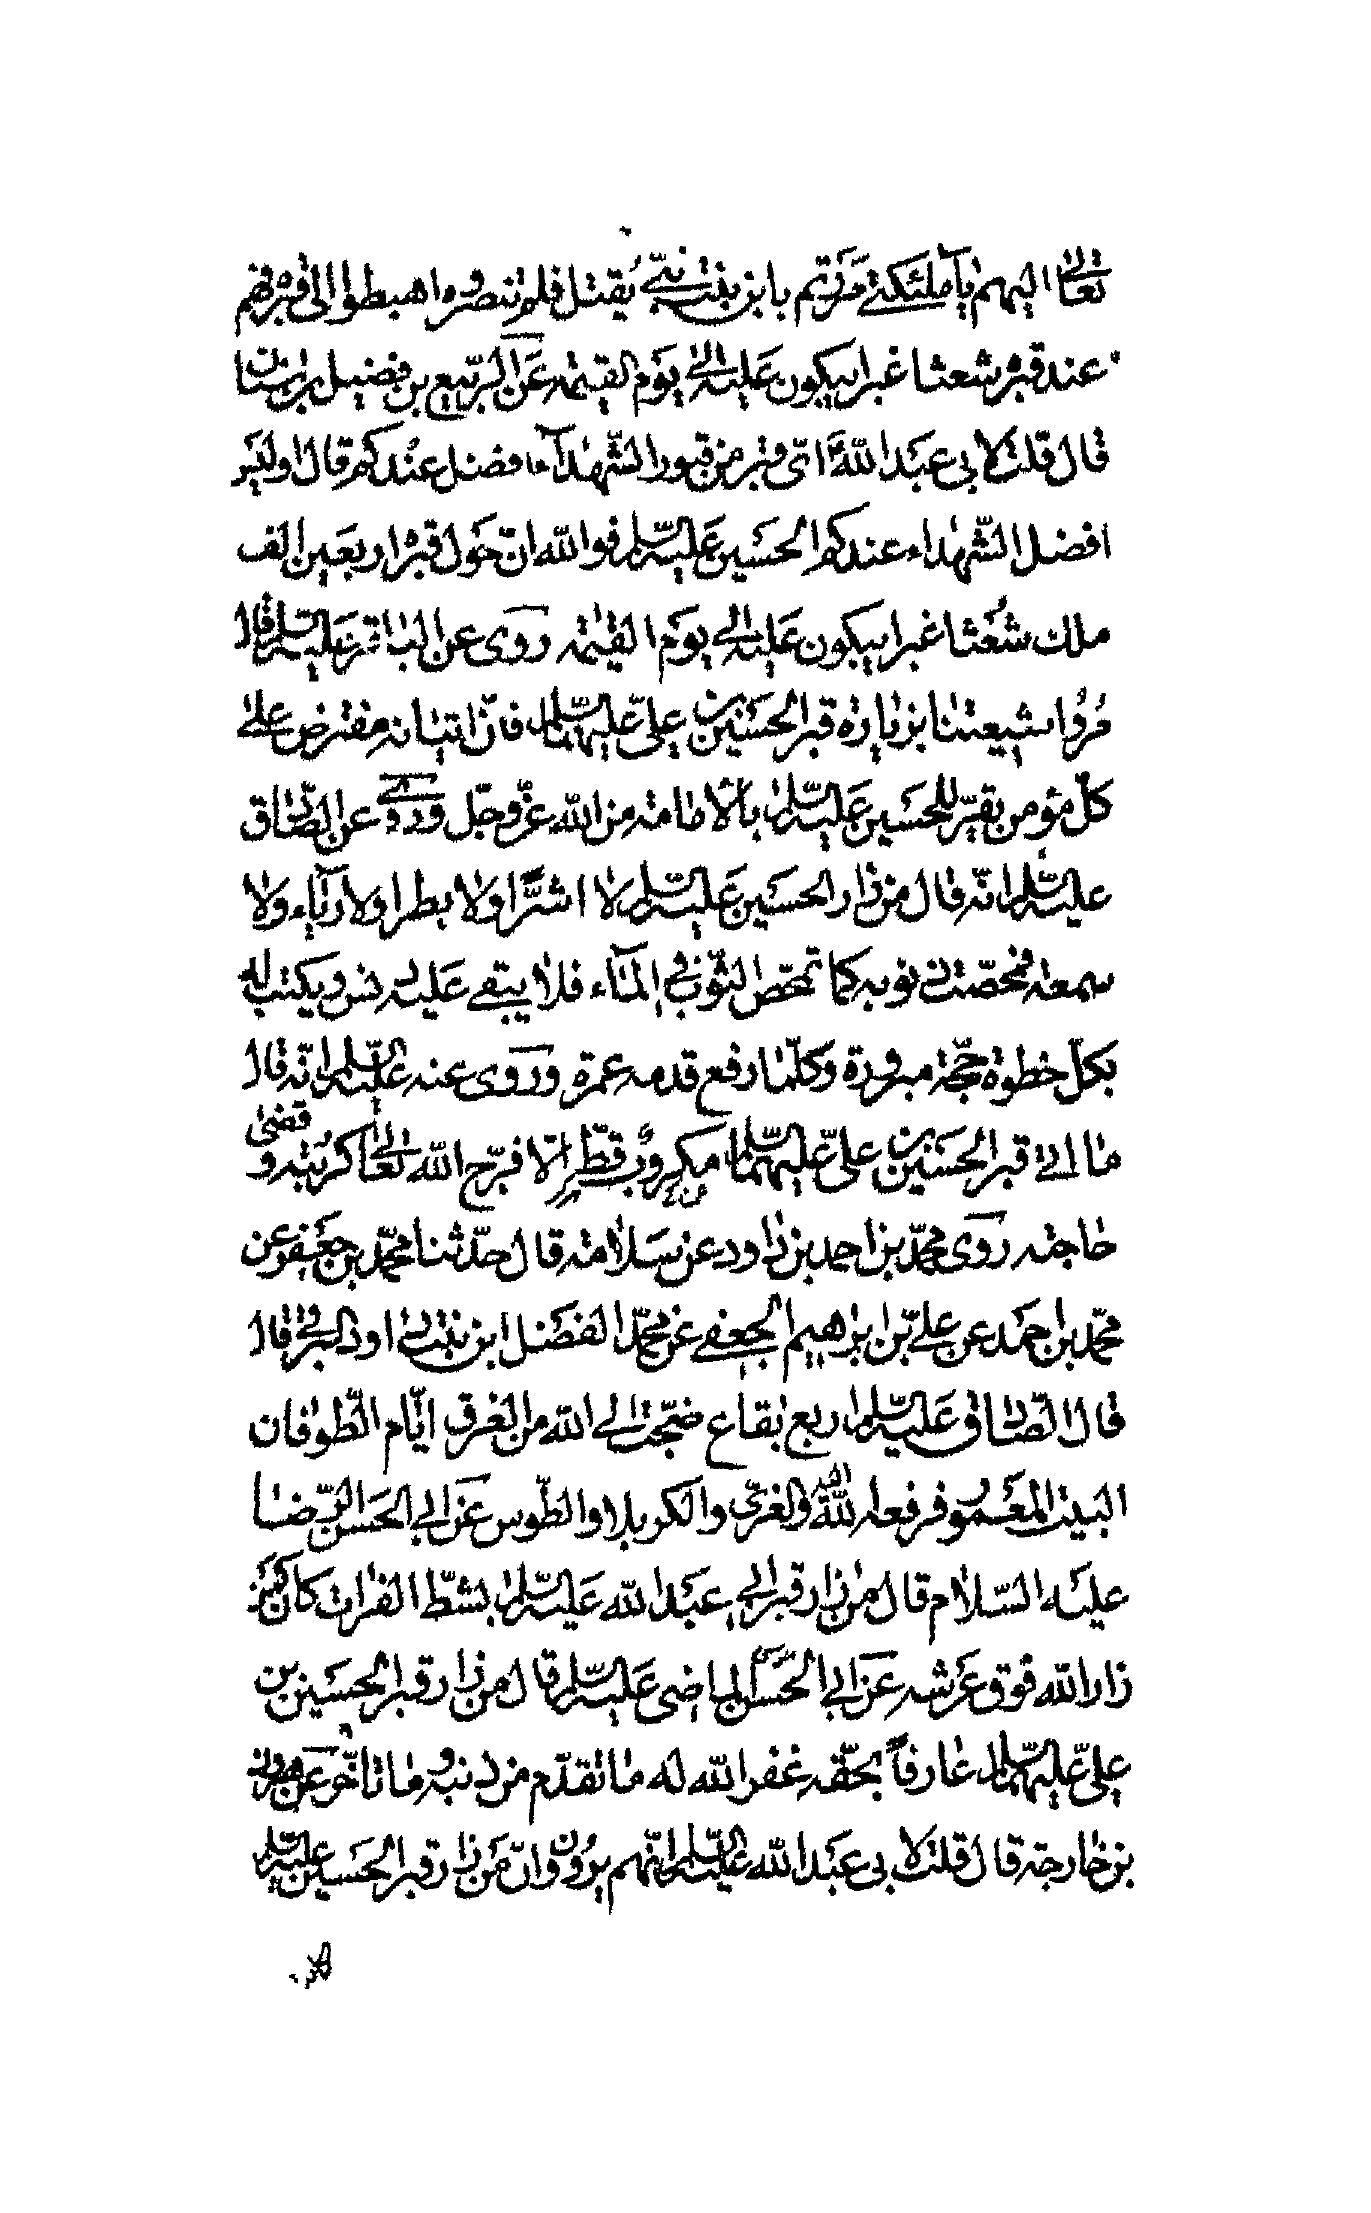 تعالى اليهم يا ملئكتي مررتم بابن بنت نبيي يقتل فلم تنصروه اهبطوا الى قبره فهم
عند قبره شعثا غبرا يبكون عليه الى يوم القيمة عن الربيع بن فضيل بن يسار
قال قلت لابي عبد الله ع اى قبر من قبور الشهداء افضل عندكم قال اوليس
افضل الشهداء عندكم الحسين عليه السلم فو الله ان حول قبره اربعين الف
ملك شعثا غبرا يبكون عليه الى يوم القيمة روى عن الباقر عليه السلم قال
مروا شيعتنا بزيارة قبر الحسين بن على عليهما السلم فان اتيانه مفترض على
كل مؤمن يقر للحسين عليه السلم بالامامة من الله عز وجل وروى عن الصادق
عليه السلم انه قال من زار الحسين عليه السلم لا اشرا ولا بطرا ولا رياء ولا
سمعة محصت ذنوبه كما تمحص الثوب فى الماء فلا يبقى عليه دنس ويكتب له
بكل خطوة حجة مبرورة وكلما رفع قدمه عمرة وروى عنه عليه السلم انه قال
ما اتى قبر الحسين بن على عليهما السلم مكروب قط الا فرج الله تعالى كربته وقضى
حاجته روى محمد بن احمد بن داود عن سلامة قال حدثنا محمد بن جعفر عن
محمد بن احمد عن على بن ابرهيم الجعفى عن محمد الفضل ابن بنت داود الرقى قال
قال الصادق عليه السلم اربع بقاع ضجت الى الله من الغرق ايام الطوفان
البيت المعمور فرفعه الله اليه والغرى والكربلا والطوس عن ابى الحسن الرضا
عليه السلام قال من زار قبر ابى عبد الله عليه السلم بشط الفرات كان كمن
زار الله فوق عرشه عن ابى الحسن الماضى عليه السلم قال من زار قبر الحسين بن
على عليهما السلم عارفا بحقه غفر الله له ما تقدم من ذنبه وما تاخر عن هرون
بن خارجة قال قلت لابى عبد الله عليه السلم انهم يروون ان من زار قبر الحسين عليه السلم